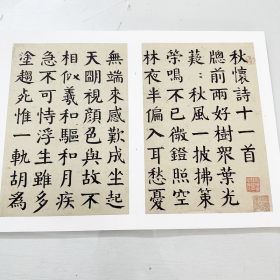 秋懷詩十一首
牕前兩好樹衆葉光
薿〻秋風一披拂策
策鳴不已微鐙照空
牀夜半偏入耳愁憂
無端來感歎成坐起
天明視顏色與故不
相似羲和驅日月疾
急不可恃浮生雖多
塗趨死惟一軌胡為